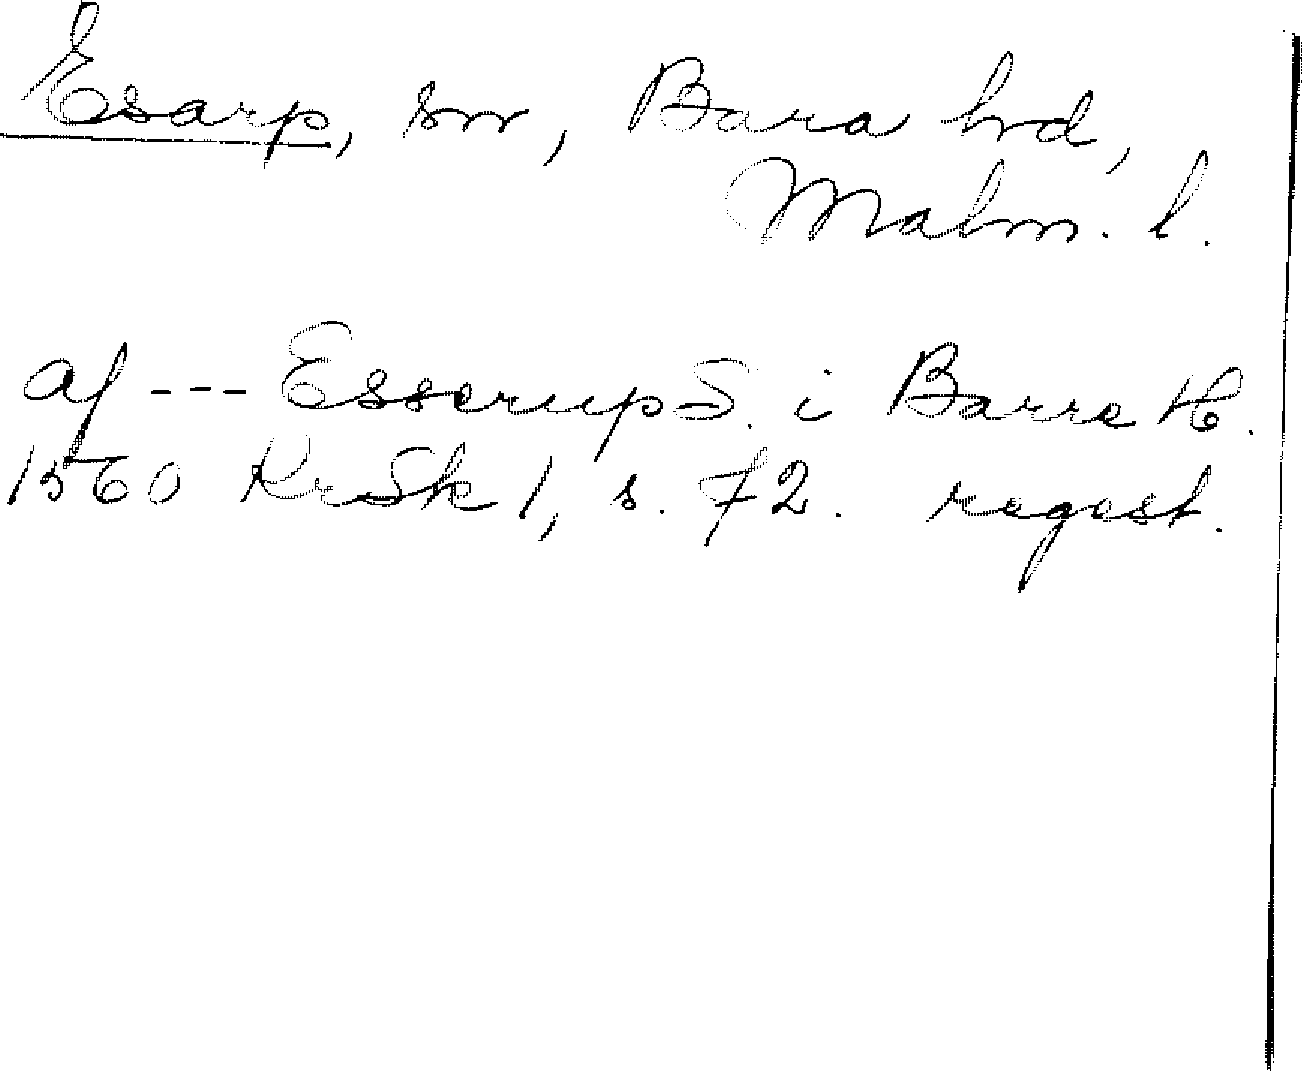 Esarp, sn, Bara hd,
Malm. l.
af --- Esserup S. i Barre H.
1560 KrSk 1, s. 72. regest.